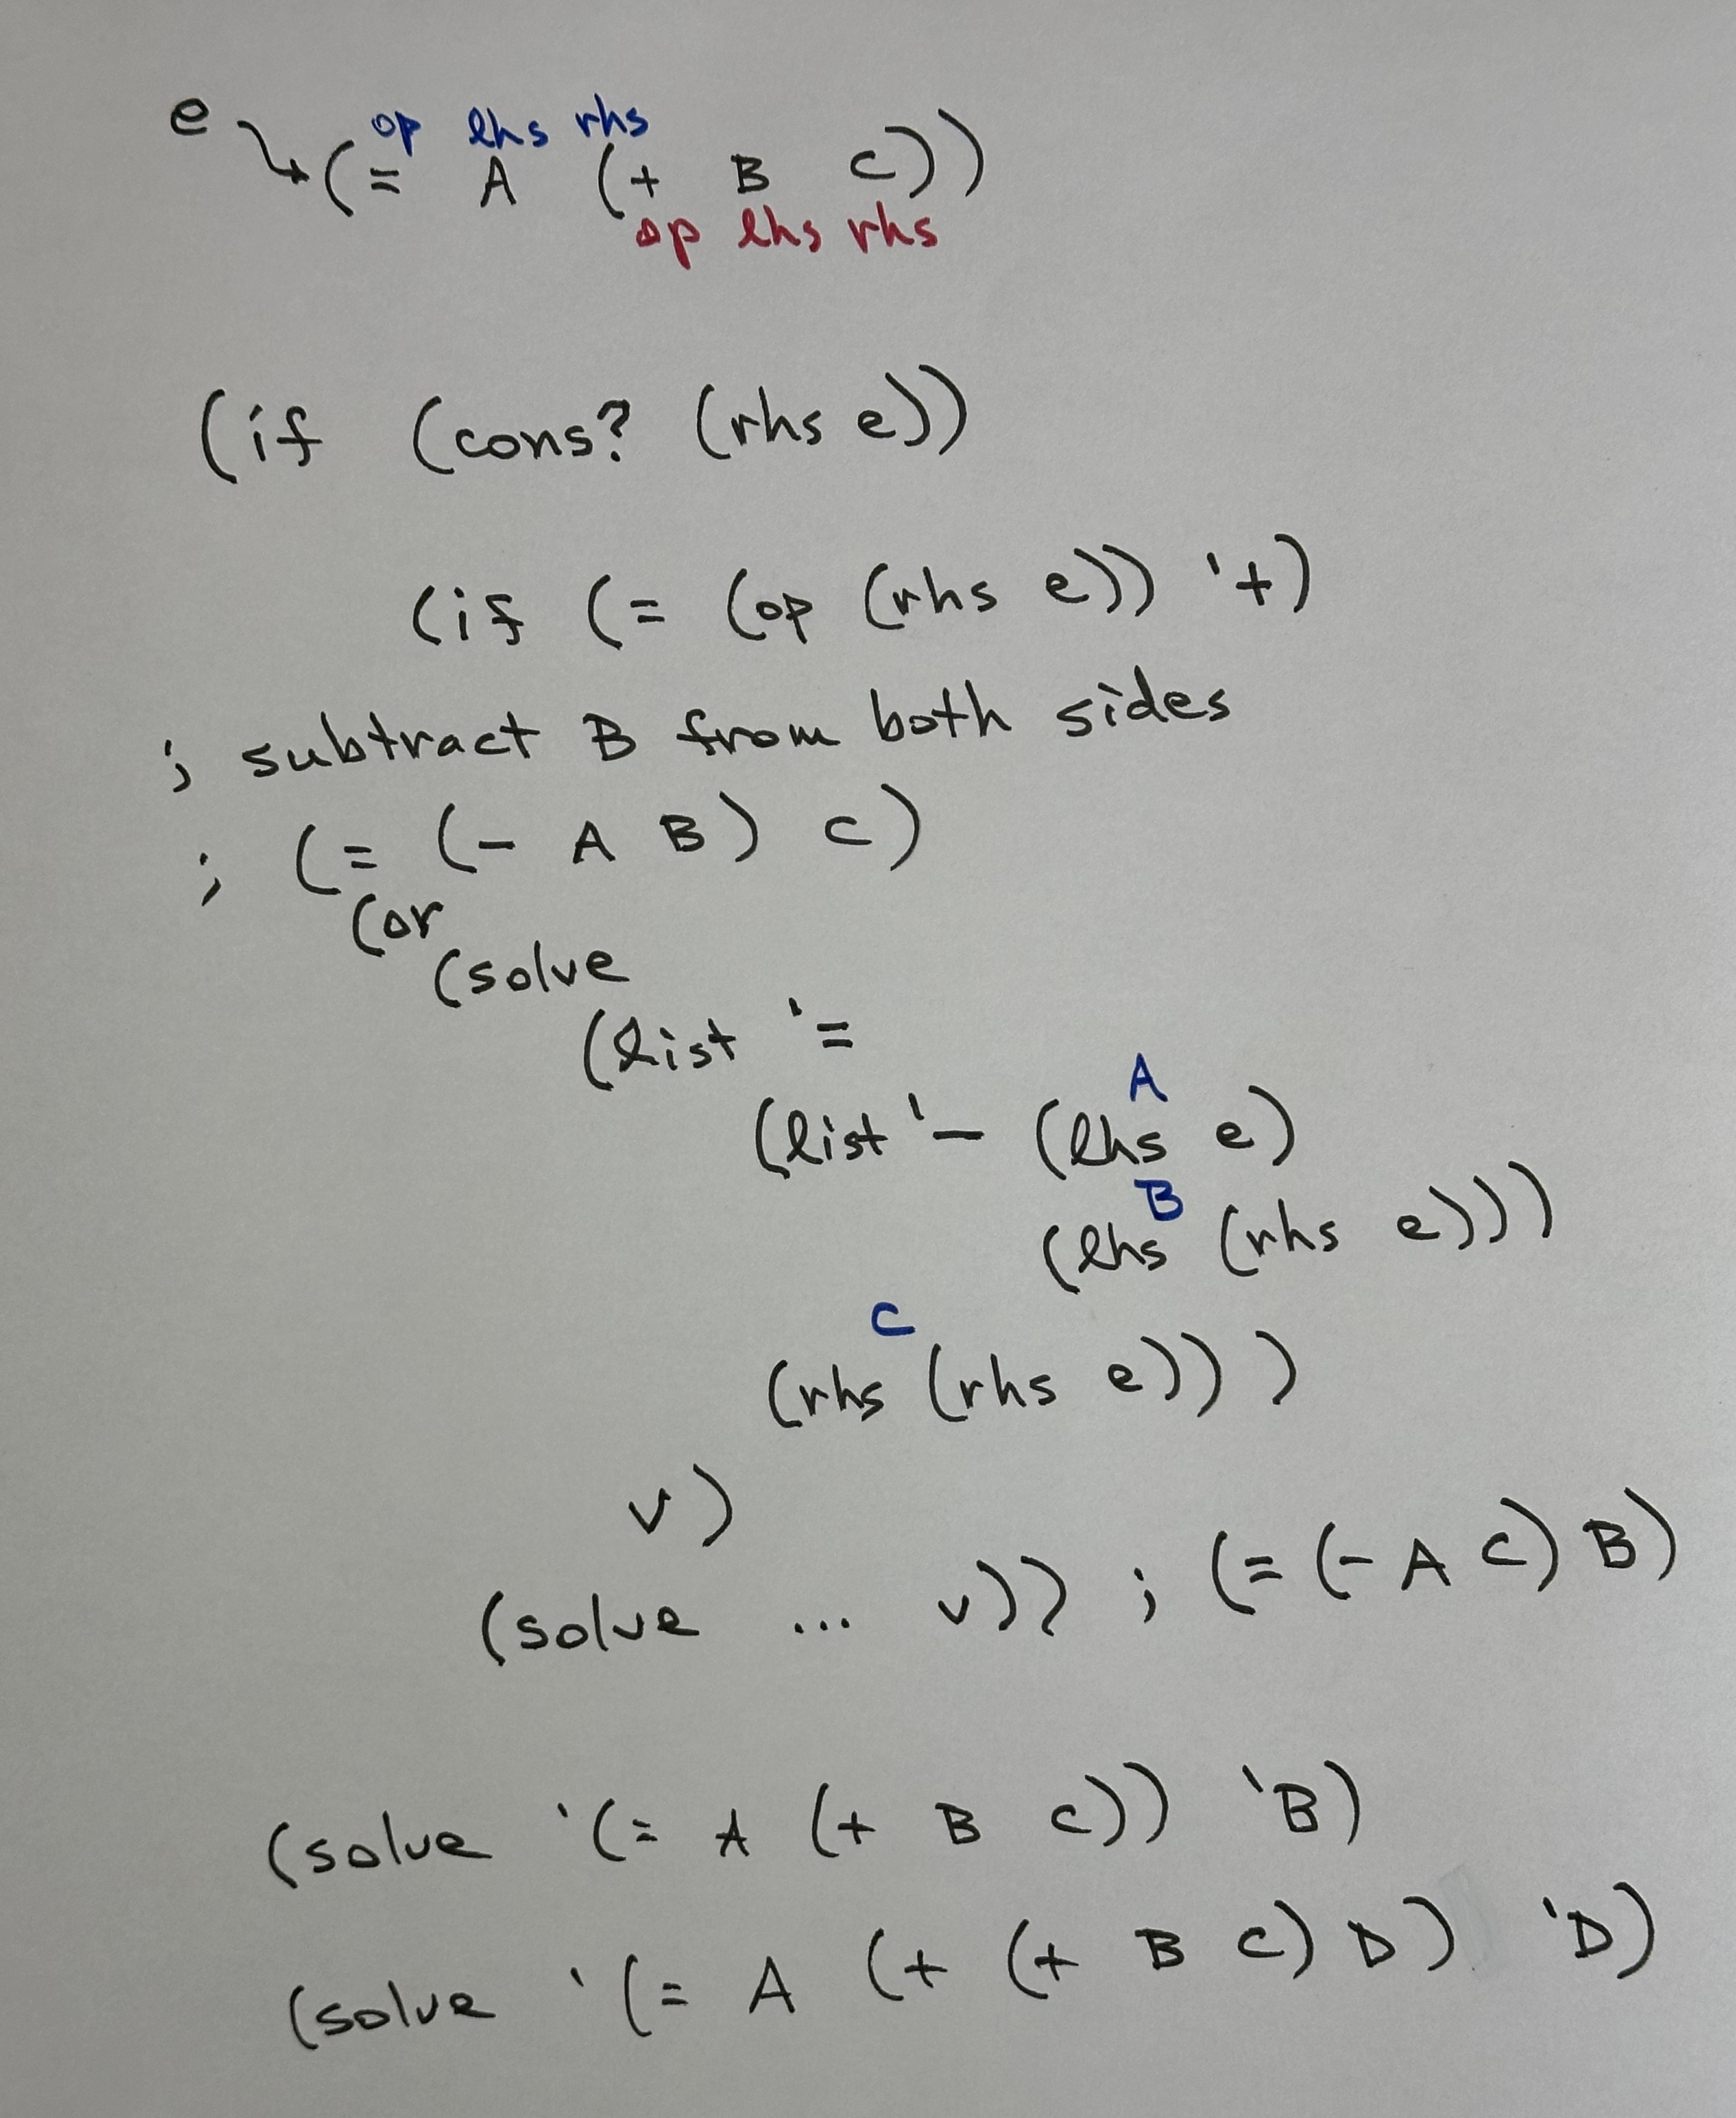 e
op lhs rhs
(= A (+ B C))
op lhs rhs
(if (cons? (rhs e))
(if (= (op (rhs e)) '+)
; subtract B from both sides
; (= (- A B) C)
(or
(solve
(list '=
A
(list '- (lhs e)
B
(lhs (rhs e)))
C
(rhs (rhs e)))
v)
(solve ... v)) ; (= (- A C) B)
(solve '(= A (+ B C)) 'B)
(solve '(= A (+ (+ B C) D) 'D)